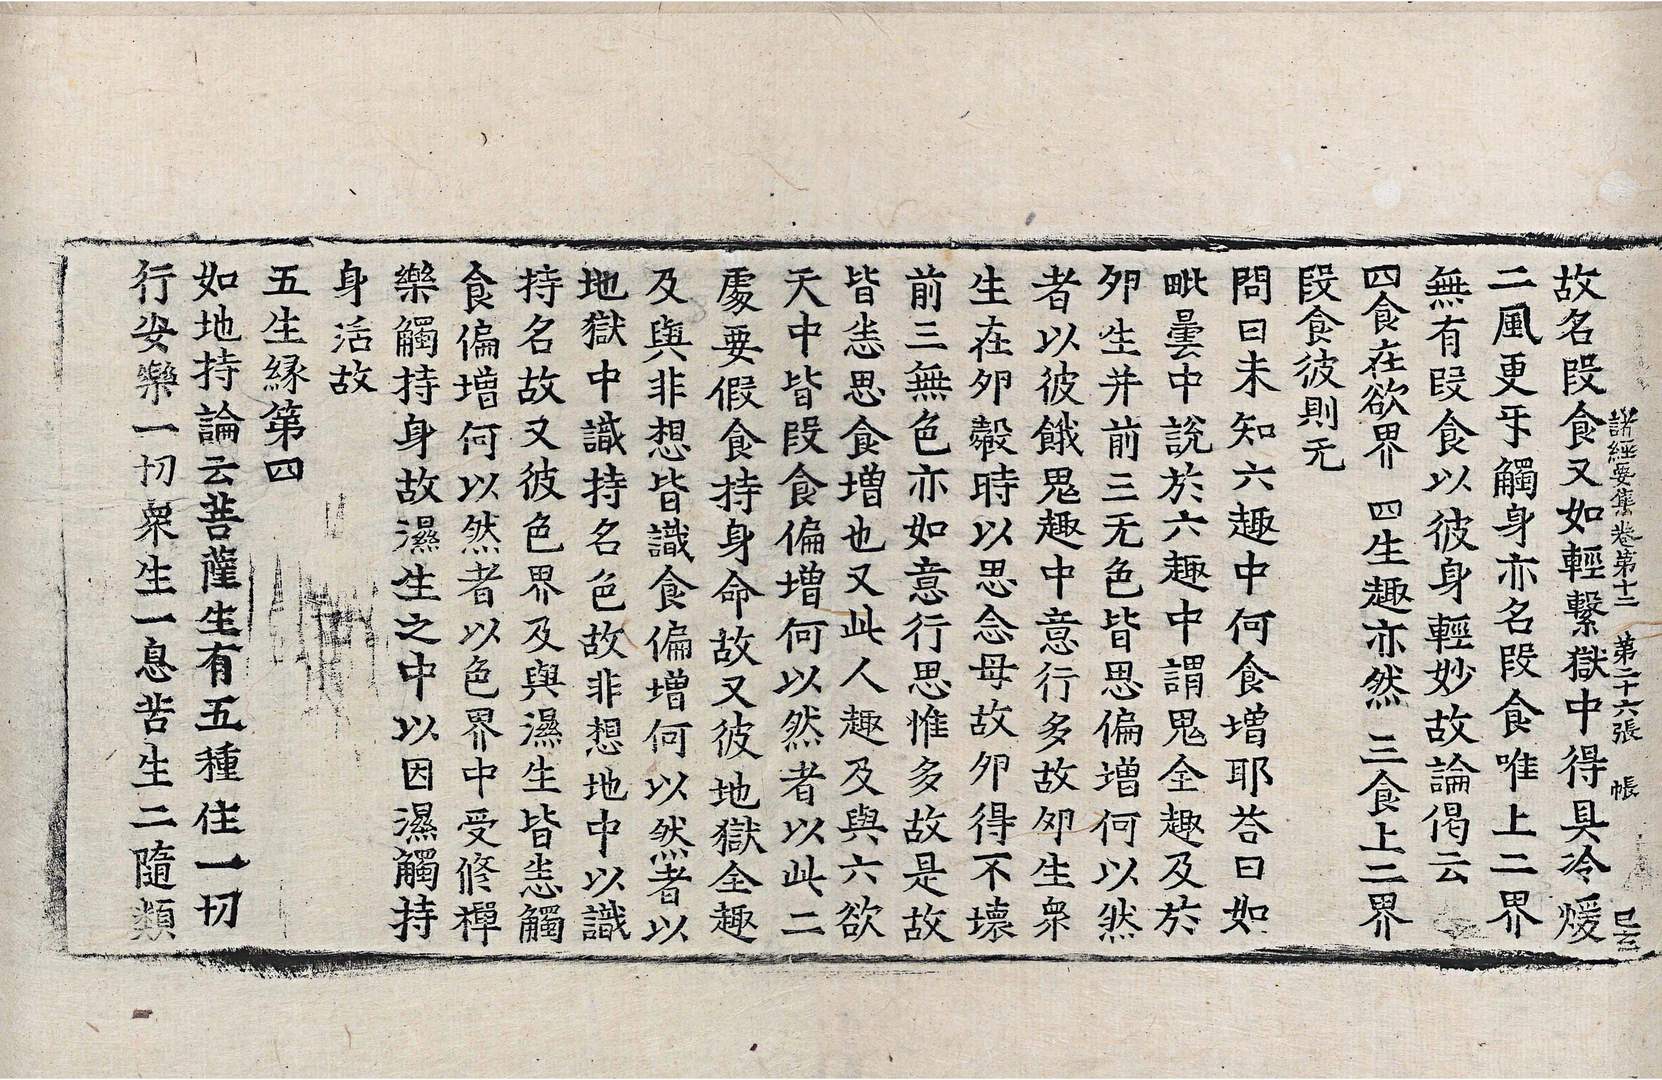 諸經要集卷第十二 第二十六張 帳
故名段食又如輕繫獄中得具冷煖
二風更牙觸身亦名段食唯上二界
無有段食以彼身輕妙故論偈云
四食在欲界 四生趣亦然 三食上二界
段食彼則无
問曰未知六趣中何食增耶荅曰如
毗曇中說於六趣中謂鬼全趣及於
夘生并前三无色皆思偏增何以然
者以彼餓鬼趣中意行多故夘生衆
生在夘㲉時以思念母故夘得不壞
前三無色亦如意行思惟多故是故
皆恚思食增也又此人趣及與六欲
天中皆段食偏增何以然者以此二
處要假食持身命故又彼地獄全趣
及與非想皆識食偏增何以然者以
地獄中識持名色故非想地中以識
持名故又彼色界及與濕生皆恚觸
食偏增何以然者以色界中受修禪
樂觸持身故濕生之中以因濕觸持
身活故
五生緣第四
如地持論云菩薩生有五種住一切
行安樂一切衆生一息苦生二隨類